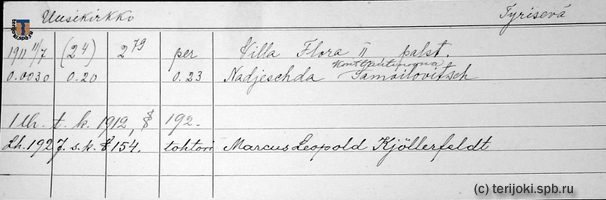 Uusikirkko Tyrisevä
1911 11/7 (24) 2 79 per Villa Flora II palst.
0.0030 0.20 0.23 Nadjeschda Samoilovitsch
1 lh. t. k. 1912, § 192.
Lh. 1927. s. k. § 154. tohtori Marcus Leopold Kjöllerfeldt
(c) terijoki.spb.ru